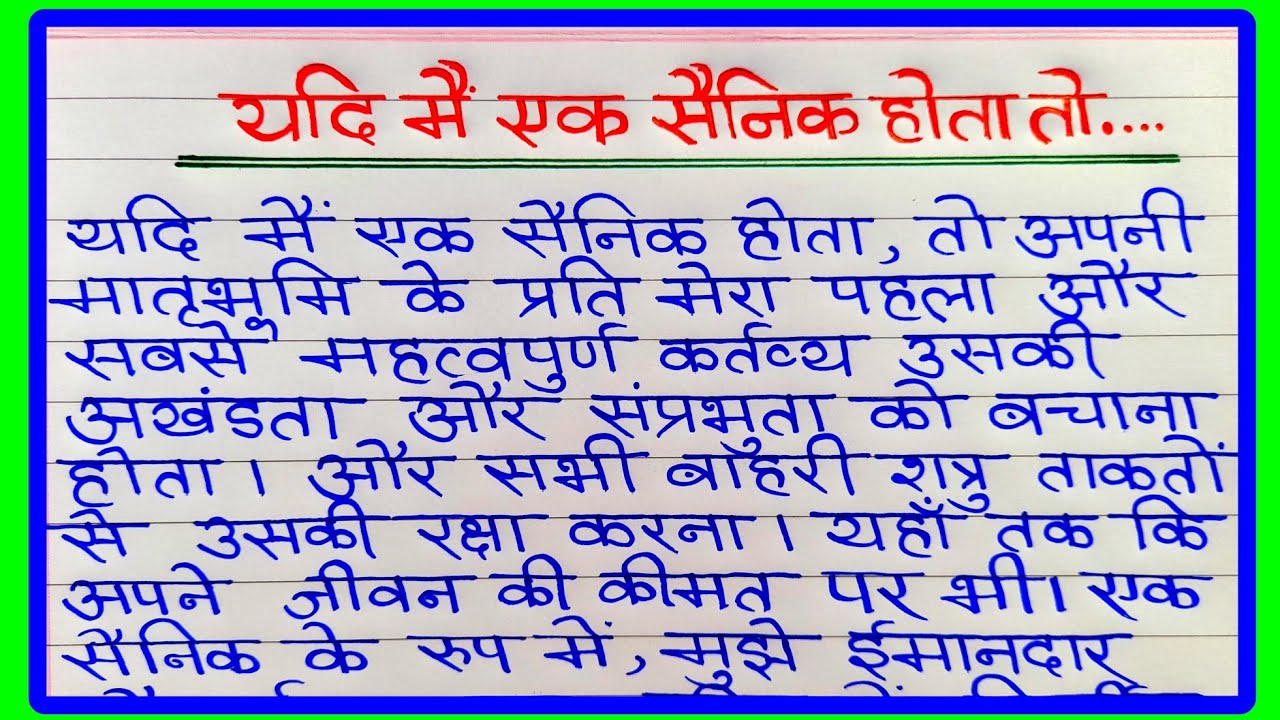 यदि मैं एक सैनिक होता तो....
यदि मैं एक सैनिक होता, तो अपनी
मातृभूमि के प्रति मेरा पहला और
सबसे महत्वपुर्ण कर्तव्य उसकी
अखंडता और संप्रभुता को बचाना
होता। और सभी बाहरी शत्रु ताकतों
से उसकी रक्षा करना। यहाँ तक कि
अपने जीवन की कीमत पर भी। एक
सैनिक के रुप में, मुझे ईमानदार